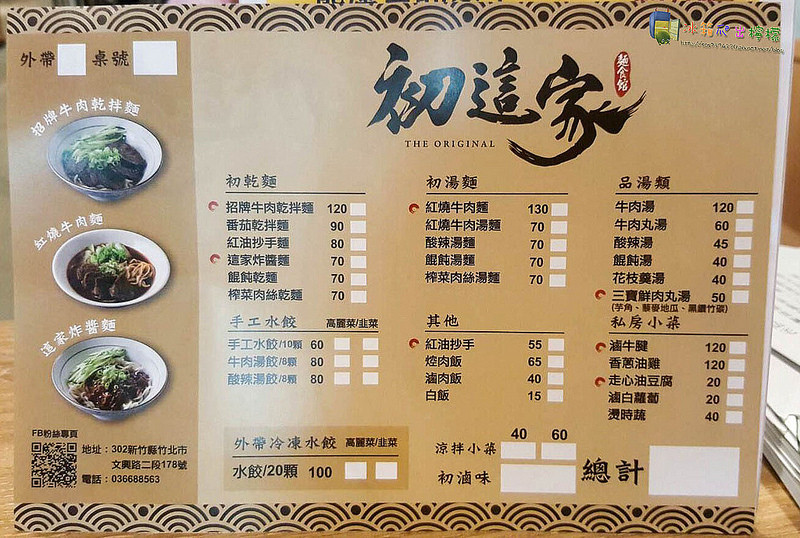 冰箱爬出檸檬
外帶 桌號
初這家
麵食館
THE ORIGINAL
招牌牛肉乾拌麵
紅燒牛肉麵
這家炸醬麵
初乾麵
招牌牛肉乾拌麵 120
番茄乾拌麵 90
紅油抄手麵 80
這家炸醬麵 70
餛飩乾麵 70
榨菜肉絲乾麵 70
手工水餃 高麗菜/韭菜
手工水餃/10顆 60
牛肉湯餃/8顆 80
酸辣湯餃/8顆 80
外帶冷凍水餃 高麗菜/韭菜
水餃/20顆 100
初湯麵
紅燒牛肉麵 130
紅燒牛肉湯麵 70
酸辣湯麵 70
餛飩湯麵 70
榨菜肉絲湯麵 70
其他
紅油抄手 55
焢肉飯 65
滷肉飯 40
白飯 15
品湯類
牛肉湯 120
牛肉丸湯 60
酸辣湯 45
餛飩湯 40
花枝羹湯 40
三寶鮮肉丸湯 50
(芋角、藜麥地瓜、黑鑽竹碳)
私房小菜
滷牛腱 120
香蔥油雞 120
走心油豆腐 20
滷白蘿蔔 20
燙時蔬 40
40 60
涼拌小菜
初滷味
總計
FB粉絲專頁
地址：302新竹縣竹北市
文興路二段178號
電話：036688563